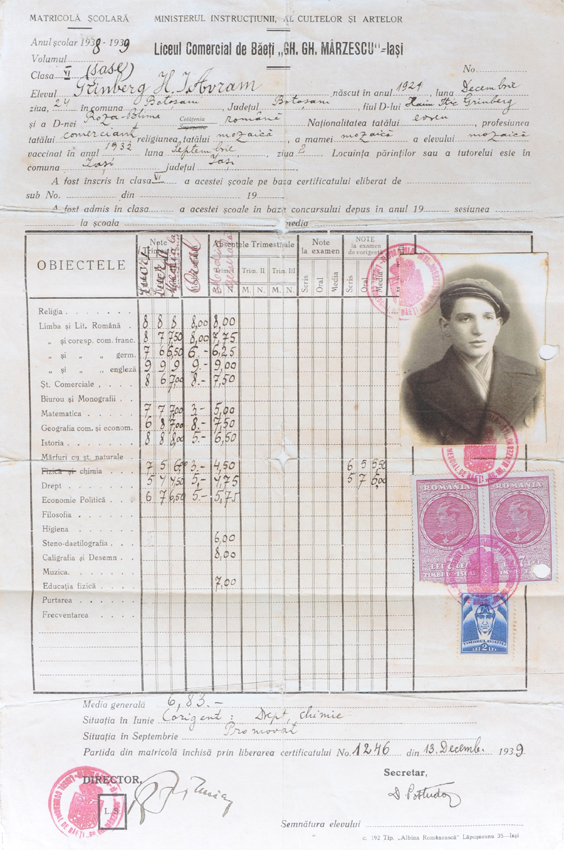 MATRICOLĂ ŞCOLARĂ
MINISTERUL INSTRUCŢIUNII, AL CULTELOR ŞI ARTELOR
Anul şcolar 1938-1939
Liceul Comercial de Băeţi „GH. GH. MÂRZESCU"-Iaşi
Volumul
Clasa VI (şase)
No.
Elevul Grinberg H. I. Avram născut în anul 1921, luna Decembrie
ziua, 24 în comuna Botoşani Judeţul Botoşani, fiul D-lui Haim Iţic Grinberg
şi a D-nei Roza-Bluma română Naţionalitatea tatălui evreu, profesiunea
tatălui comerciant religiunea tatălui mozaică, a mamei mozaică a elevului mozaică
vaccinat în anul 1932 luna Septembrie, ziua 2. Locuinţa părinţilor sau a tutorelui este în
comuna Iaşi judeţul Iaşi
A fost înscris în clasa VI a acestei şcoale pe baza certificatului eliberat de
sub No. din 19
A fost admis în clasa a acestei şcoale în baza concursului depus în anul 19 sesiunea
la şcoala media
OBIECTELE
Note
Absenţele Trimestriale
Note la examen
NOTE la examen de corigenţă
Trim. II
Trim. III
M. N. M. N.
Scris Oral Media
Scris Oral Media
Religia
Limba şi Lit. Română 8 8 8 8,00 8,00
„ şi coresp. com. franc. 8 7 7,50 8,00 7,75
„ şi „ germ. 7 6 6,50 6.- 6,25
„ şi „ engleză 9 9 9 9.- 9,00
Şt. Comerciale 8 6 7,00 8.- 7,50
Biurou şi Monografii
Matematica 7 7 7,00 3.- 5,00
Geografia com. şi econom. 6 8 7,00 8.- 7,50
Istoria 8 8 8,00 5.- 6,50
Mărfuri cu şt. naturale
Fizică şi chimia 7 5 6,00 5.- 4,50 6 5 5,50
Drept 5 4 4,50 5,- 4,75 5 7 6,00
Economie Politică 6 7 6,50 5.- 5,75
Filosofia
Higiena
Steno-dactilografia 6,00
Caligrafia şi Desemn 8,00
Muzica
Educaţia fizică 7,00
Purtarea
Frecventarea
ROMANIA ROMANIA
LEI 2 LEI
Media generală 6,83.-
Situaţia în Iunie Corigent: Dept, chimie
Situaţia în Septembrie Promovat
Partida din matricolă închisă prin liberarea certificatului No. 1246 din 13. Decembrie 1939
DIRECTOR,
Secretar,
L. S.
Semnătura elevului
c. 192 Tip. „Albina Românească" Lăpuşneanu 35—Iaşi